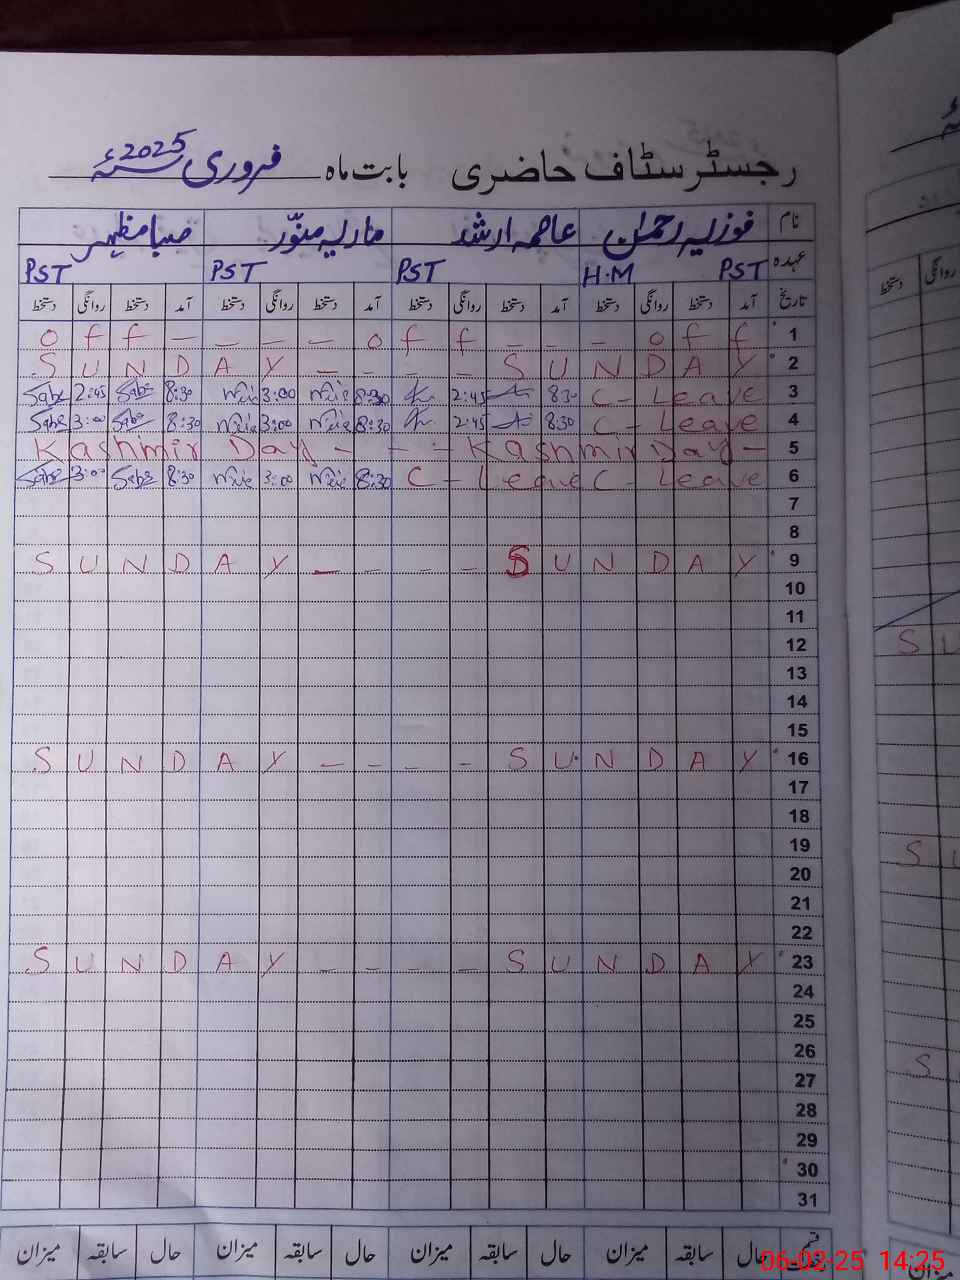 رجسٹر سٹاف حاضری بابت ماہ فروری 2025ء
نام فوزیہ رحمٰن عاصمہ ارشد ماریہ منوّر صبا مظہر
عہدہ PST H.M PST PST PST
تاریخ آمد دستخط روانگی دستخط آمد دستخط روانگی دستخط آمد دستخط روانگی دستخط آمد دستخط روانگی دستخط
o f f - - - - o f f - - - o f f 1
S U N D A Y - - - - S U N D A Y 2
Sabs 2:45 Sabs 8:30 3:00 8:30 2:45 8:30 C - Leave 3
Sabs 3:00 Sabs 8:30 3:00 8:30 2:45 8:30 C - Leave 4
Kashmir Day - - - Kashmir Day - 5
Sabs 3:00 Sabs 8:30 3:00 8:30 C - Leave C - Leave 6
7
8
S U N D A Y - - - - S U N D A Y 9
10
11
12
13
14
15
S U N D A Y - - - - S U N D A Y 16
17
18
19
20
21
22
S U N D A Y - - - - S U N D A Y 23
24
25
26
27
28
29
30
31
حال سابقہ میزان حال سابقہ میزان حال سابقہ میزان حال سابقہ میزان
06-02-25 14:25
روانگی دستخط
S U
S U
S
میزان